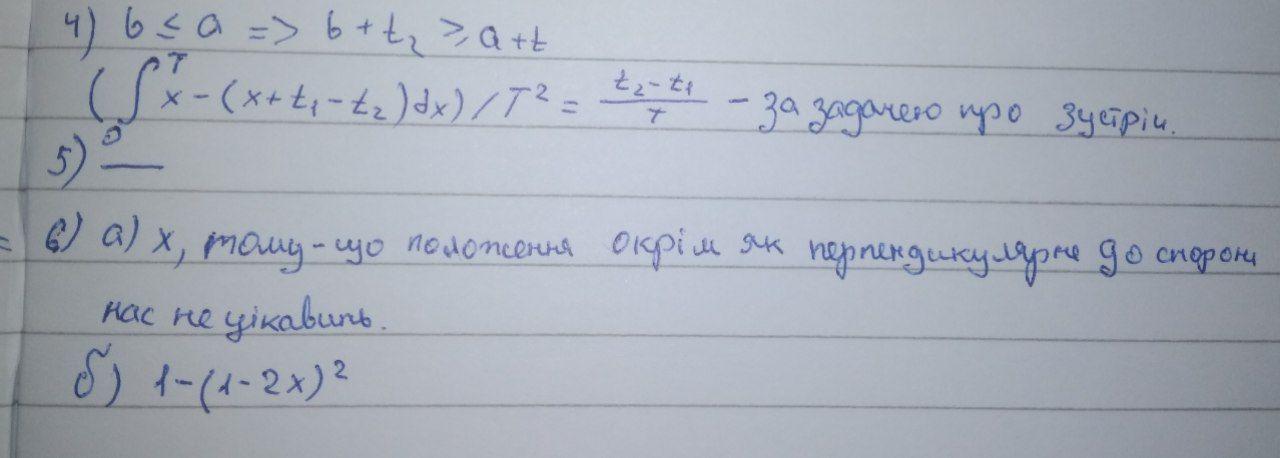 4) b ≤ a => b + t₂ ≥ a + t
(∫₀ᵀ x - (x + t₁ - t₂)dx) / T² = (t₂ - t₁)/T - за задачею про зустріч.
5) —
= 6) а) x, тому-що положення окрім як перпендикулярне до сторони
нас не цікавить.
б) 1-(1-2x)²